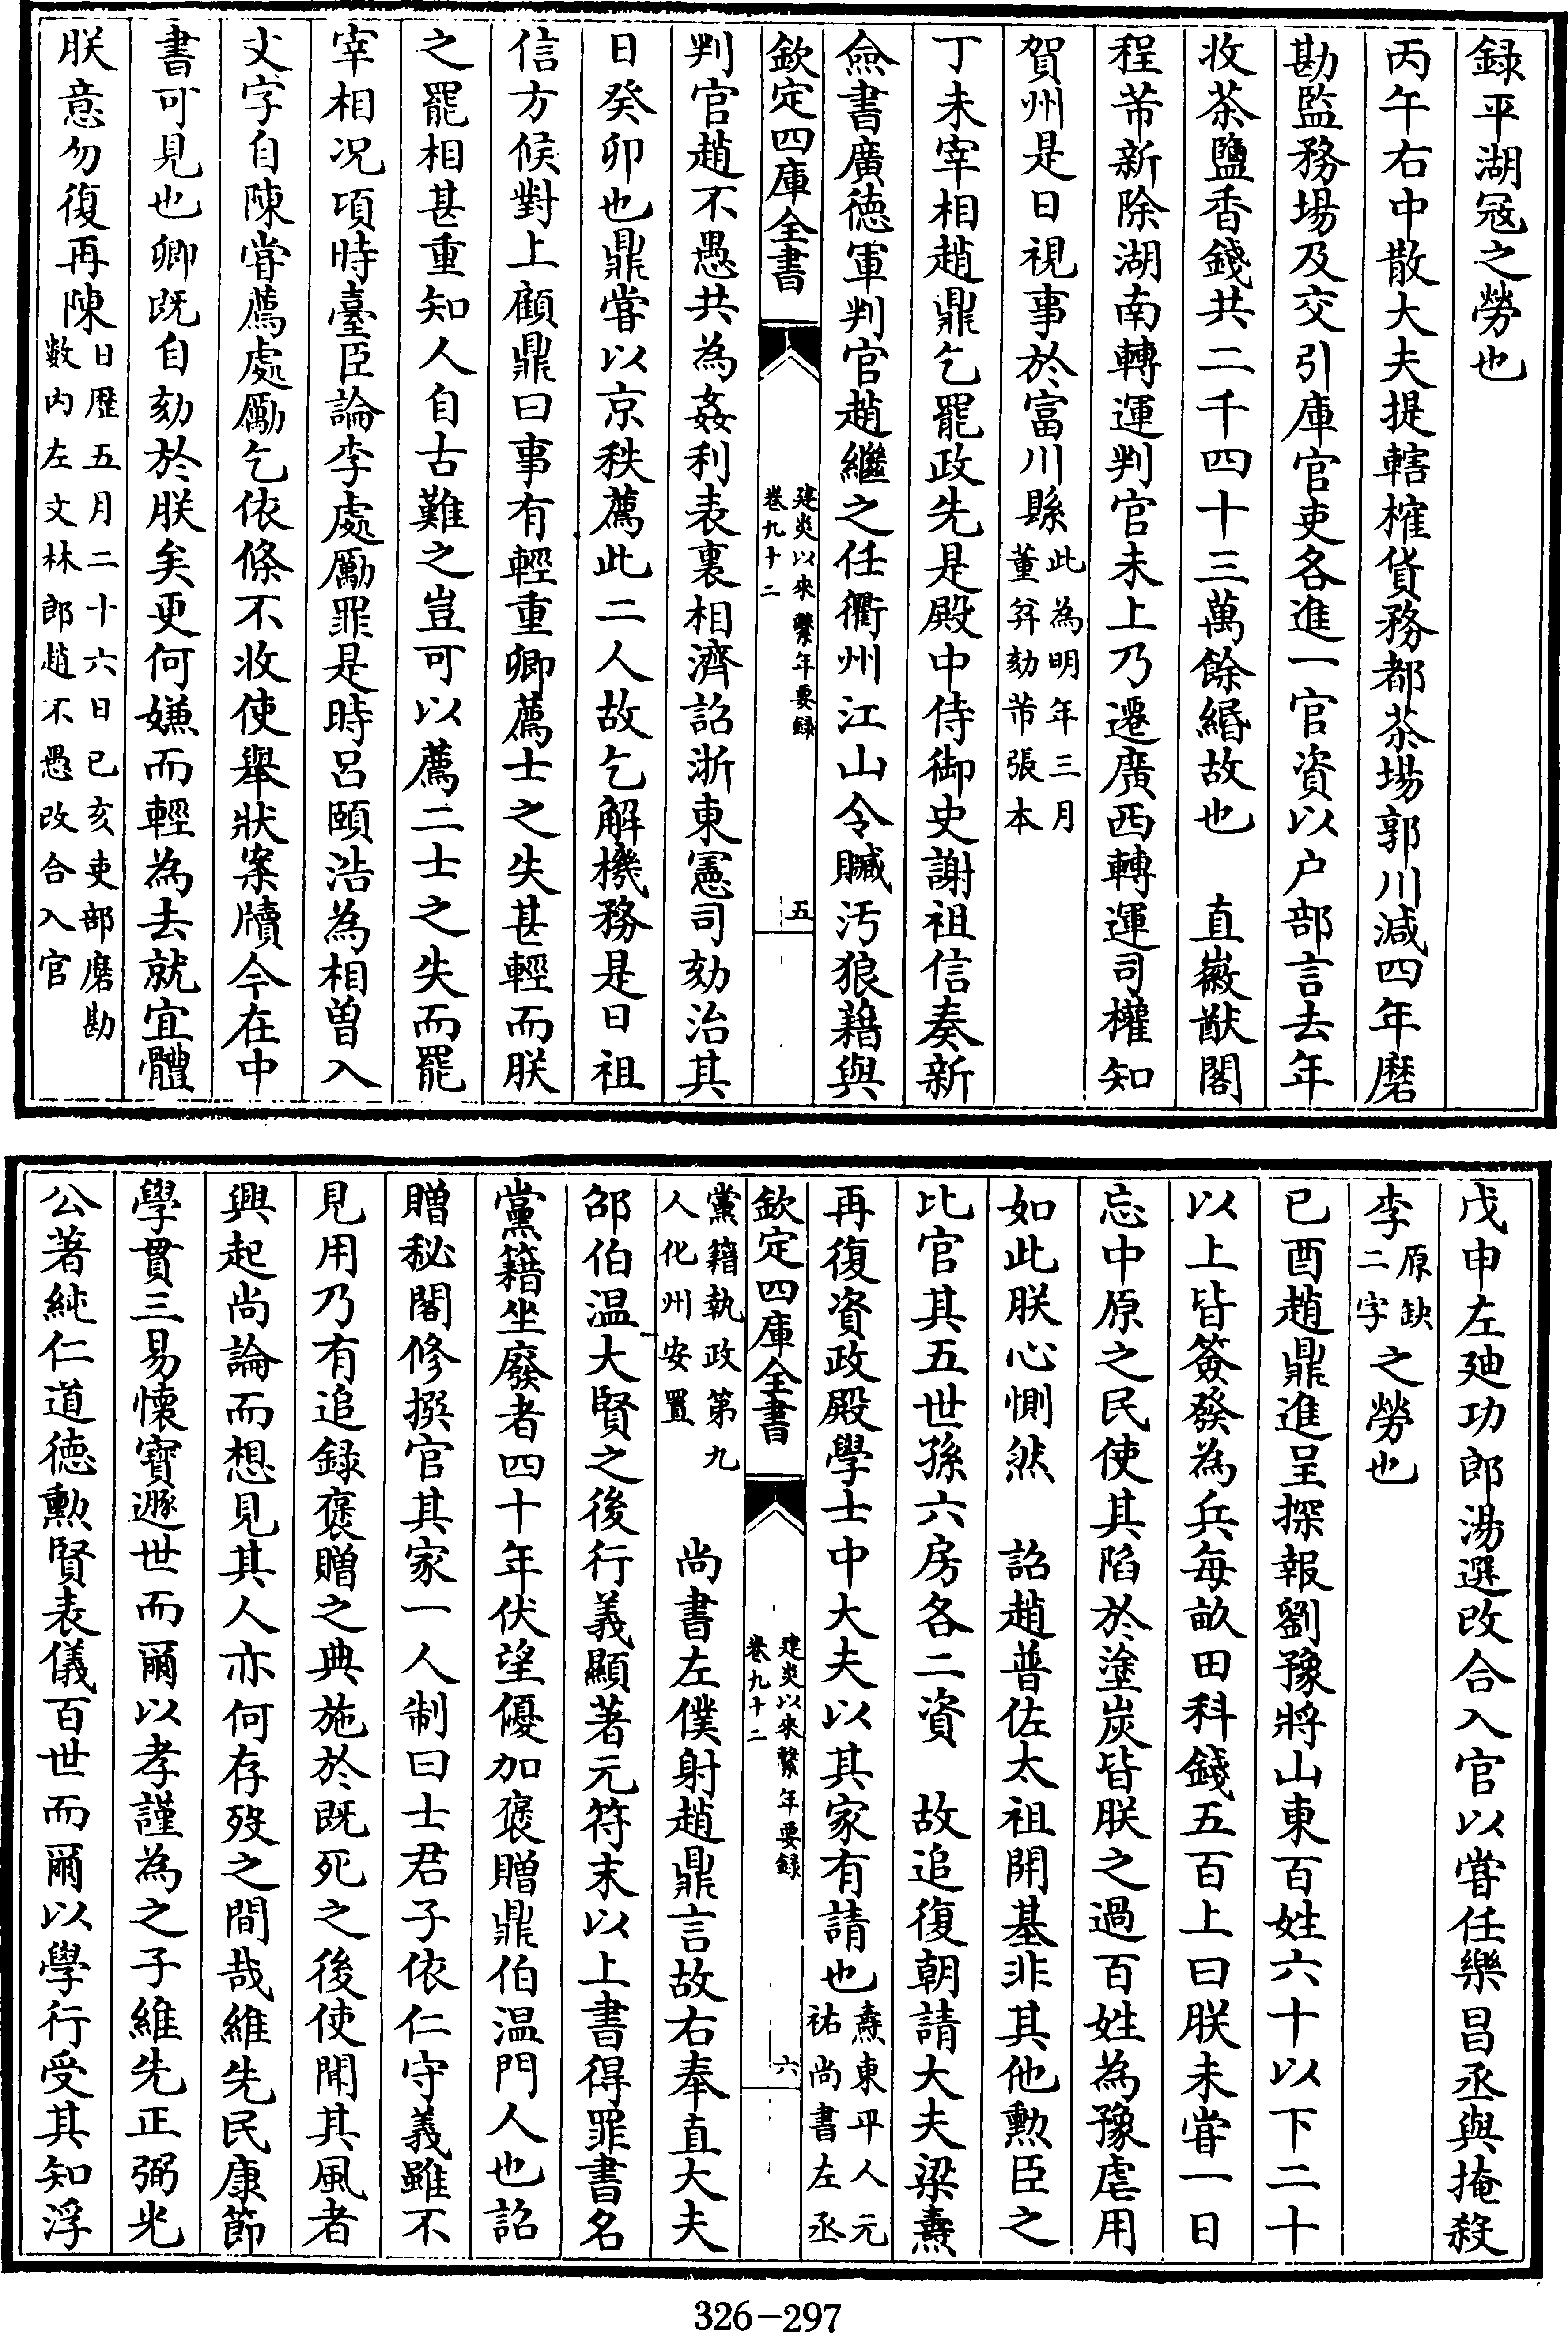 録平湖冦之勞也
丙午右中散大夫提轄榷貨務都茶場郭川減四年磨
勘監務場及交引庫官吏各進一官資以户部言去年
收茶鹽香錢共二千四十三萬餘緡故也　直徽猷閣
程芾新除湖南轉運判官未上乃遷廣西轉運司權知
賀州是日視事於富川縣此為明年三月
董弅劾芾張本
丁未宰相趙鼎乞罷政先是殿中侍御史謝祖信奏新
僉書廣德軍判官趙繼之任衢州江山令贓汚狼藉與
欽定四庫全書
建炎以來繫年要録
卷九十二
五
判官趙不愚共為姦利表裏相濟詔浙東憲司劾治其
日癸卯也鼎嘗以京秩薦此二人故乞解機務是日祖
信方候對上顧鼎曰事有輕重卿薦士之失甚輕而朕
之罷相甚重知人自古難之豈可以薦二士之失而罷
宰相况項時臺臣論李處勵罪是時呂頤浩為相曽入
文字自陳嘗薦處勵乞依條不收使舉狀案牘今在中
書可見也卿既自劾於朕矣更何嫌而輕為去就宜體
朕意勿復再陳日厯五月二十六日已亥吏部磨勘
数内左文林郎趙不愚改合入官
戊申左廸功郎湯選改合入官以嘗任樂昌丞與掩殺
李原缺
二字之勞也
已酉趙鼎進呈探報劉豫將山東百姓六十以下二十
以上皆簽發為兵每畝田科錢五百上曰朕未嘗一日
忘中原之民使其陷於塗炭皆朕之過百姓為豫虐用
如此朕心惻然　詔趙普佐太祖開基非其他勲臣之
比官其五世孫六房各二資　故追復朝請大夫梁燾
再復資政殿學士中大夫以其家有請也燾東平人元
祐尚書左丞
欽定四庫全書
建炎以來繫年要録
卷九十二
六
黨籍執政第九
人化州安置　尚書左僕射趙鼎言故右奉直大夫
邵伯温大賢之後行義顯著元符末以上書得罪書名
黨籍坐廢者四十年伏望優加褒贈鼎伯温門人也詔
贈秘閣修撰官其家一人制曰士君子依仁守義雖不
見用乃有追録褒贈之典施於既死之後使聞其風者
興起尚論而想見其人亦何存殁之間哉維先民康節
學貫三易懷寶遯世而爾以孝謹為之子維先正弼光
公著純仁道德勲賢表儀百世而爾以學行受其知浮
326-297